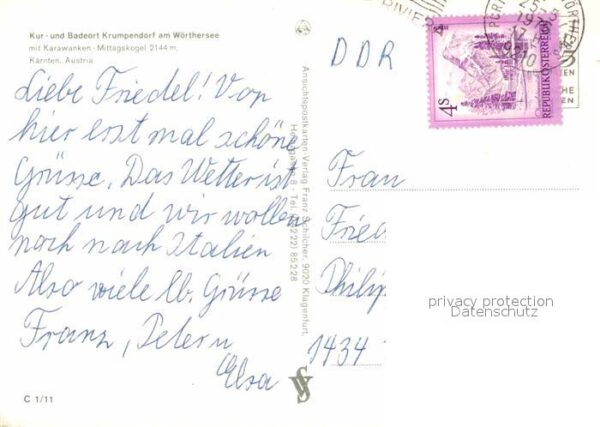 Kur- und Badeort Krumpendorf am Wörthersee
mit Karawanken - Mittagskogel 2144 m,
Kärnten, Austria
Liebe Friedel! Von
hier erst mal schöne
Grüsse. Das Wetter ist
gut und wir wollen
noch nach Italien
Also viele lb. Grüsse
Franz, Peter u
Elsa
C 1/11
Ansichtspostkarten Verlag Franz Schilcher, 9020 Klagenfurt,
8 - Tel. (0 42 22) 85 2 28
RIVIERA
4s
REPUBLIK ÖSTERREICH
DDR
Frau
Fried
Philip
1434
privacy protection
Datenschutz